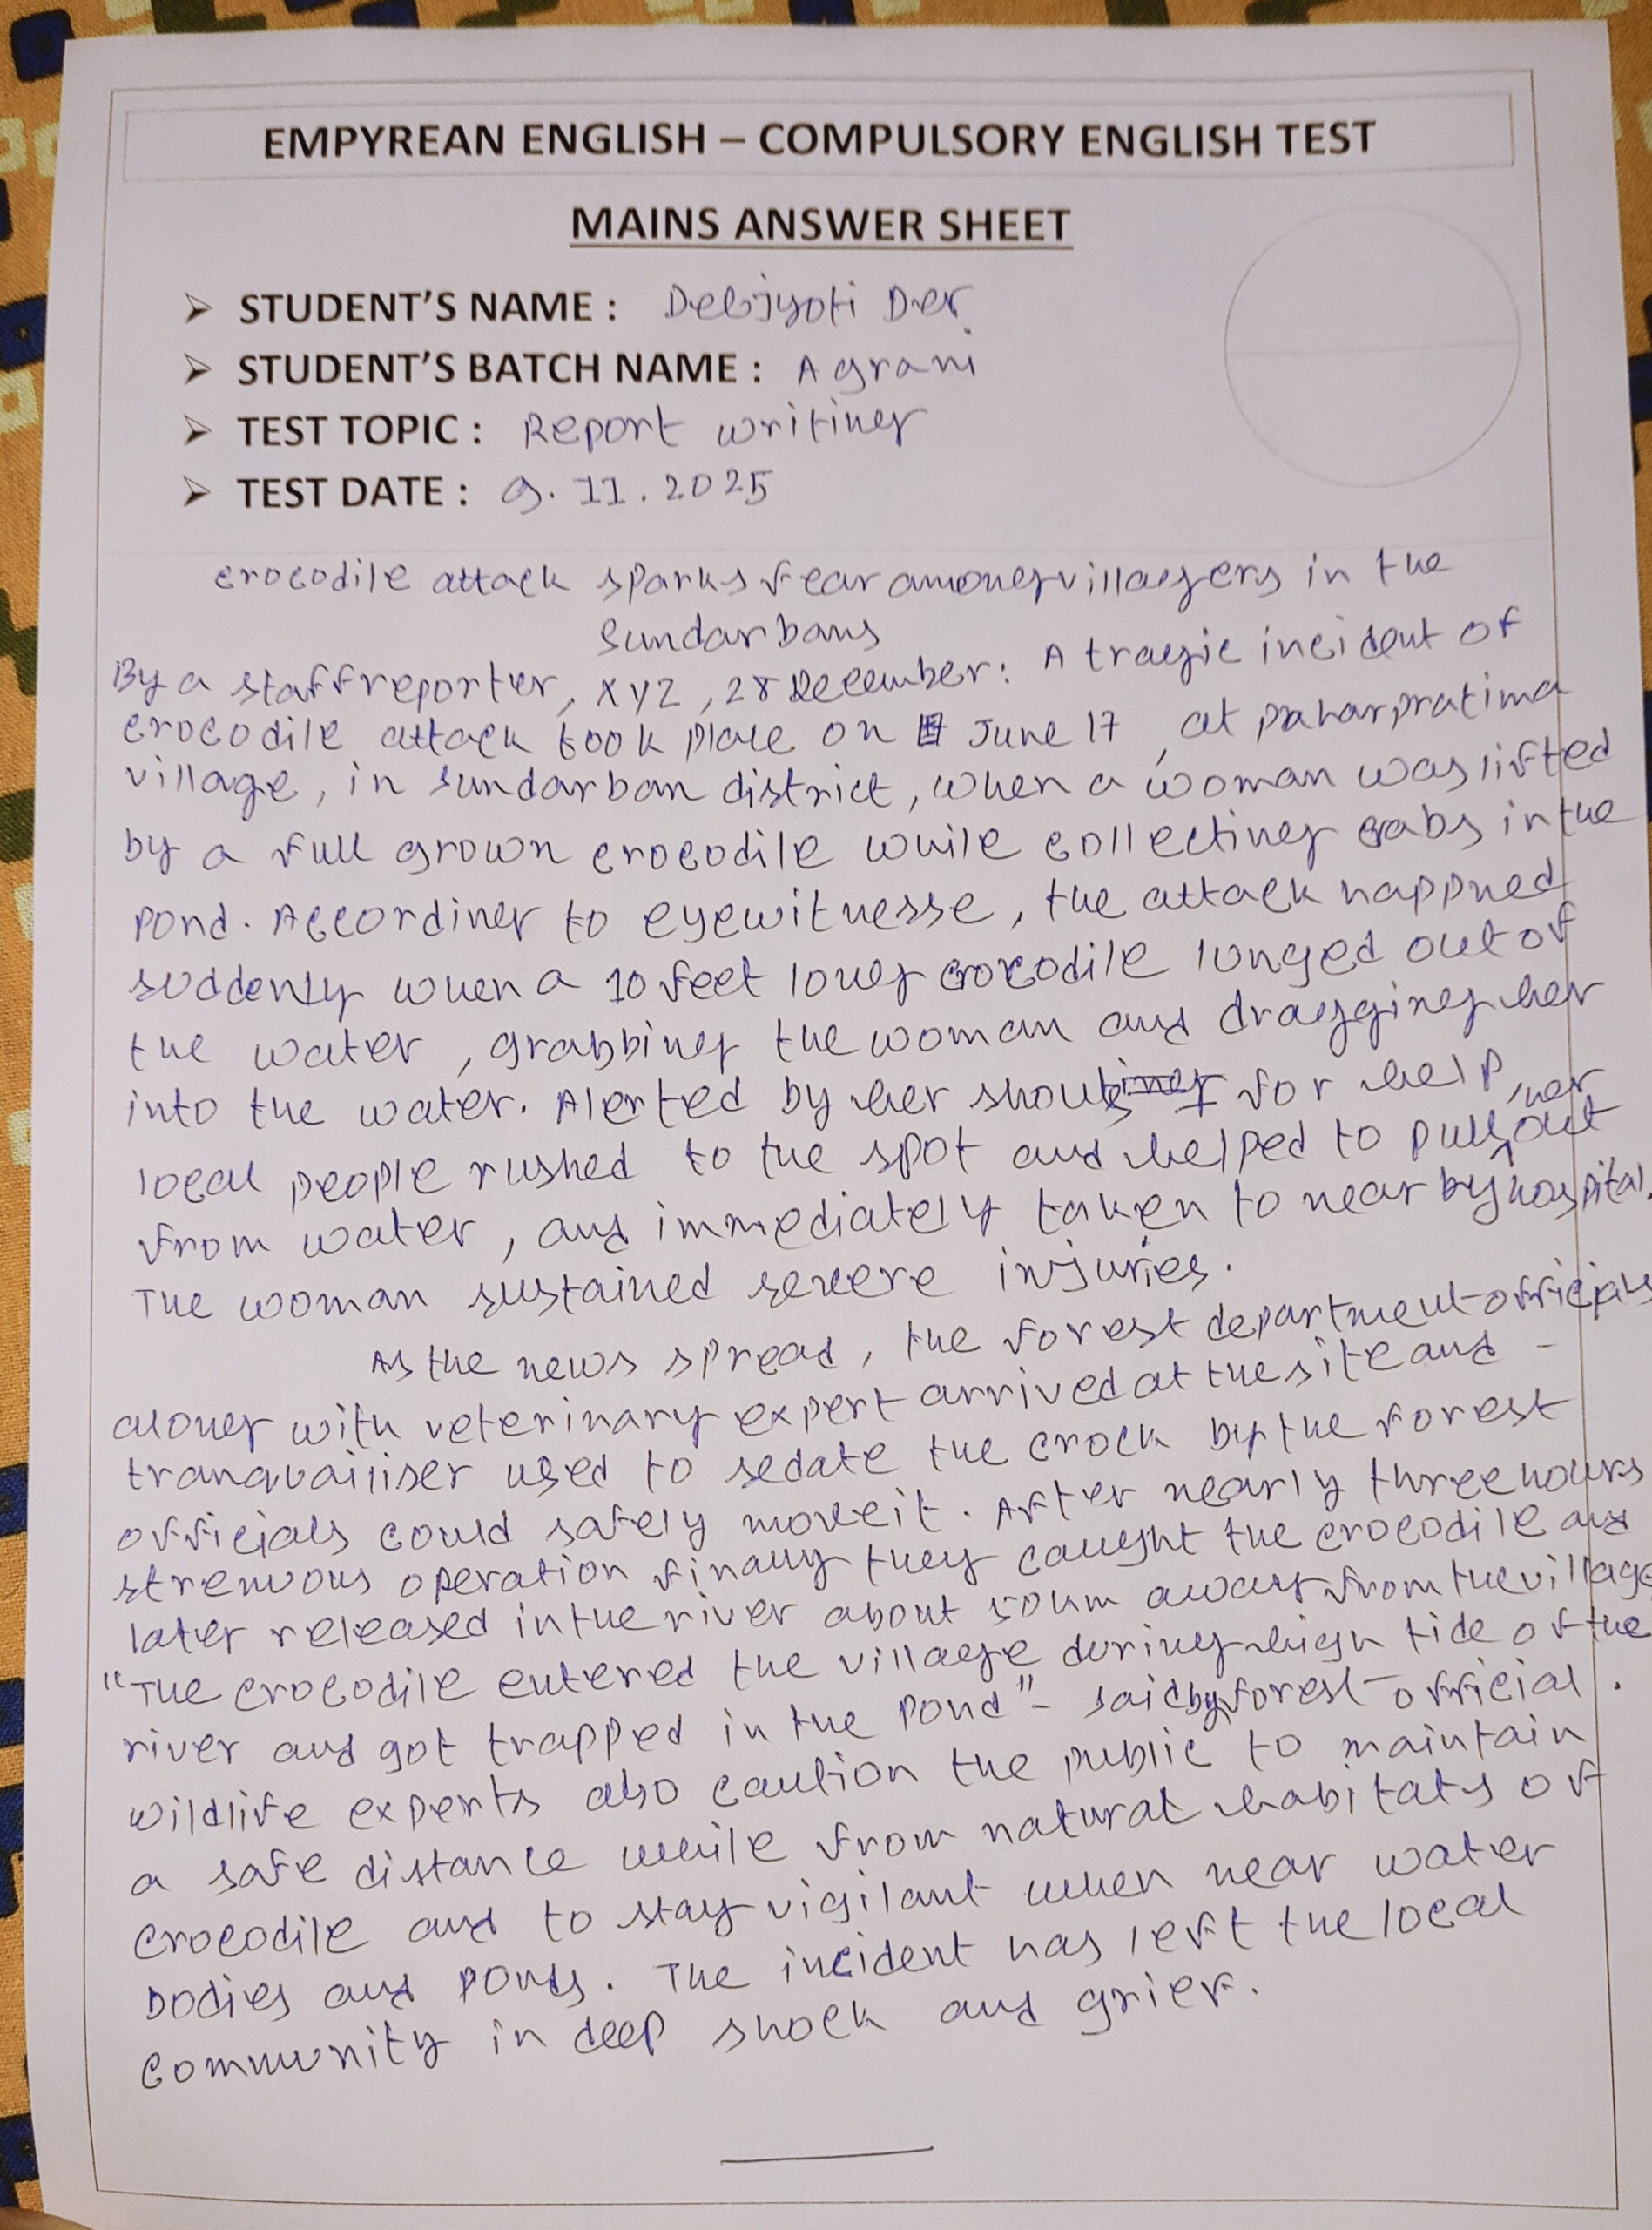 EMPYREAN ENGLISH – COMPULSORY ENGLISH TEST
MAINS ANSWER SHEET
➢ STUDENT'S NAME : Debjyoti Der
➢ STUDENT'S BATCH NAME : Agrani
➢ TEST TOPIC : Report writing
➢ TEST DATE : 9.11.2025
crocodile attack sparks fear among villagers in the
Sundarbans
By a staff reporter, XYZ, 28 December: A tragic incident of
crocodile attack took place on June 17, at paharpratima
village, in sundarban district, when a woman was lifted
by a full grown crocodile while collecting crabs in the
pond. According to eyewitnesse, the attack happned
suddenly when a 10 feet long crocodile lunged out of
the water, grabbing the woman and dragging her
into the water. Alerted by her shouts for help,
local people rushed to the spot and helped to pull her out
from water, and immediately taken to near by hospital.
The woman sustained severe injuries.
As the news spread, the forest department officials
along with veterinary expert arrived at the site and -
tranquailiser used to sedate the crock by the forest
officials could safely move it. After nearly three hours
strenuous operation finally they caught the crocodile and
later released in the river about 50 km away from the village
"The crocodile entered the village during high tide of the
river and got trapped in the pond" - said by forest official.
wildlife experts also caution the public to maintain
a safe distance while from natural habitats of
crocodile and to stay vigilant when near water
bodies and ponds. The incident has left the local
community in deep shock and grief.